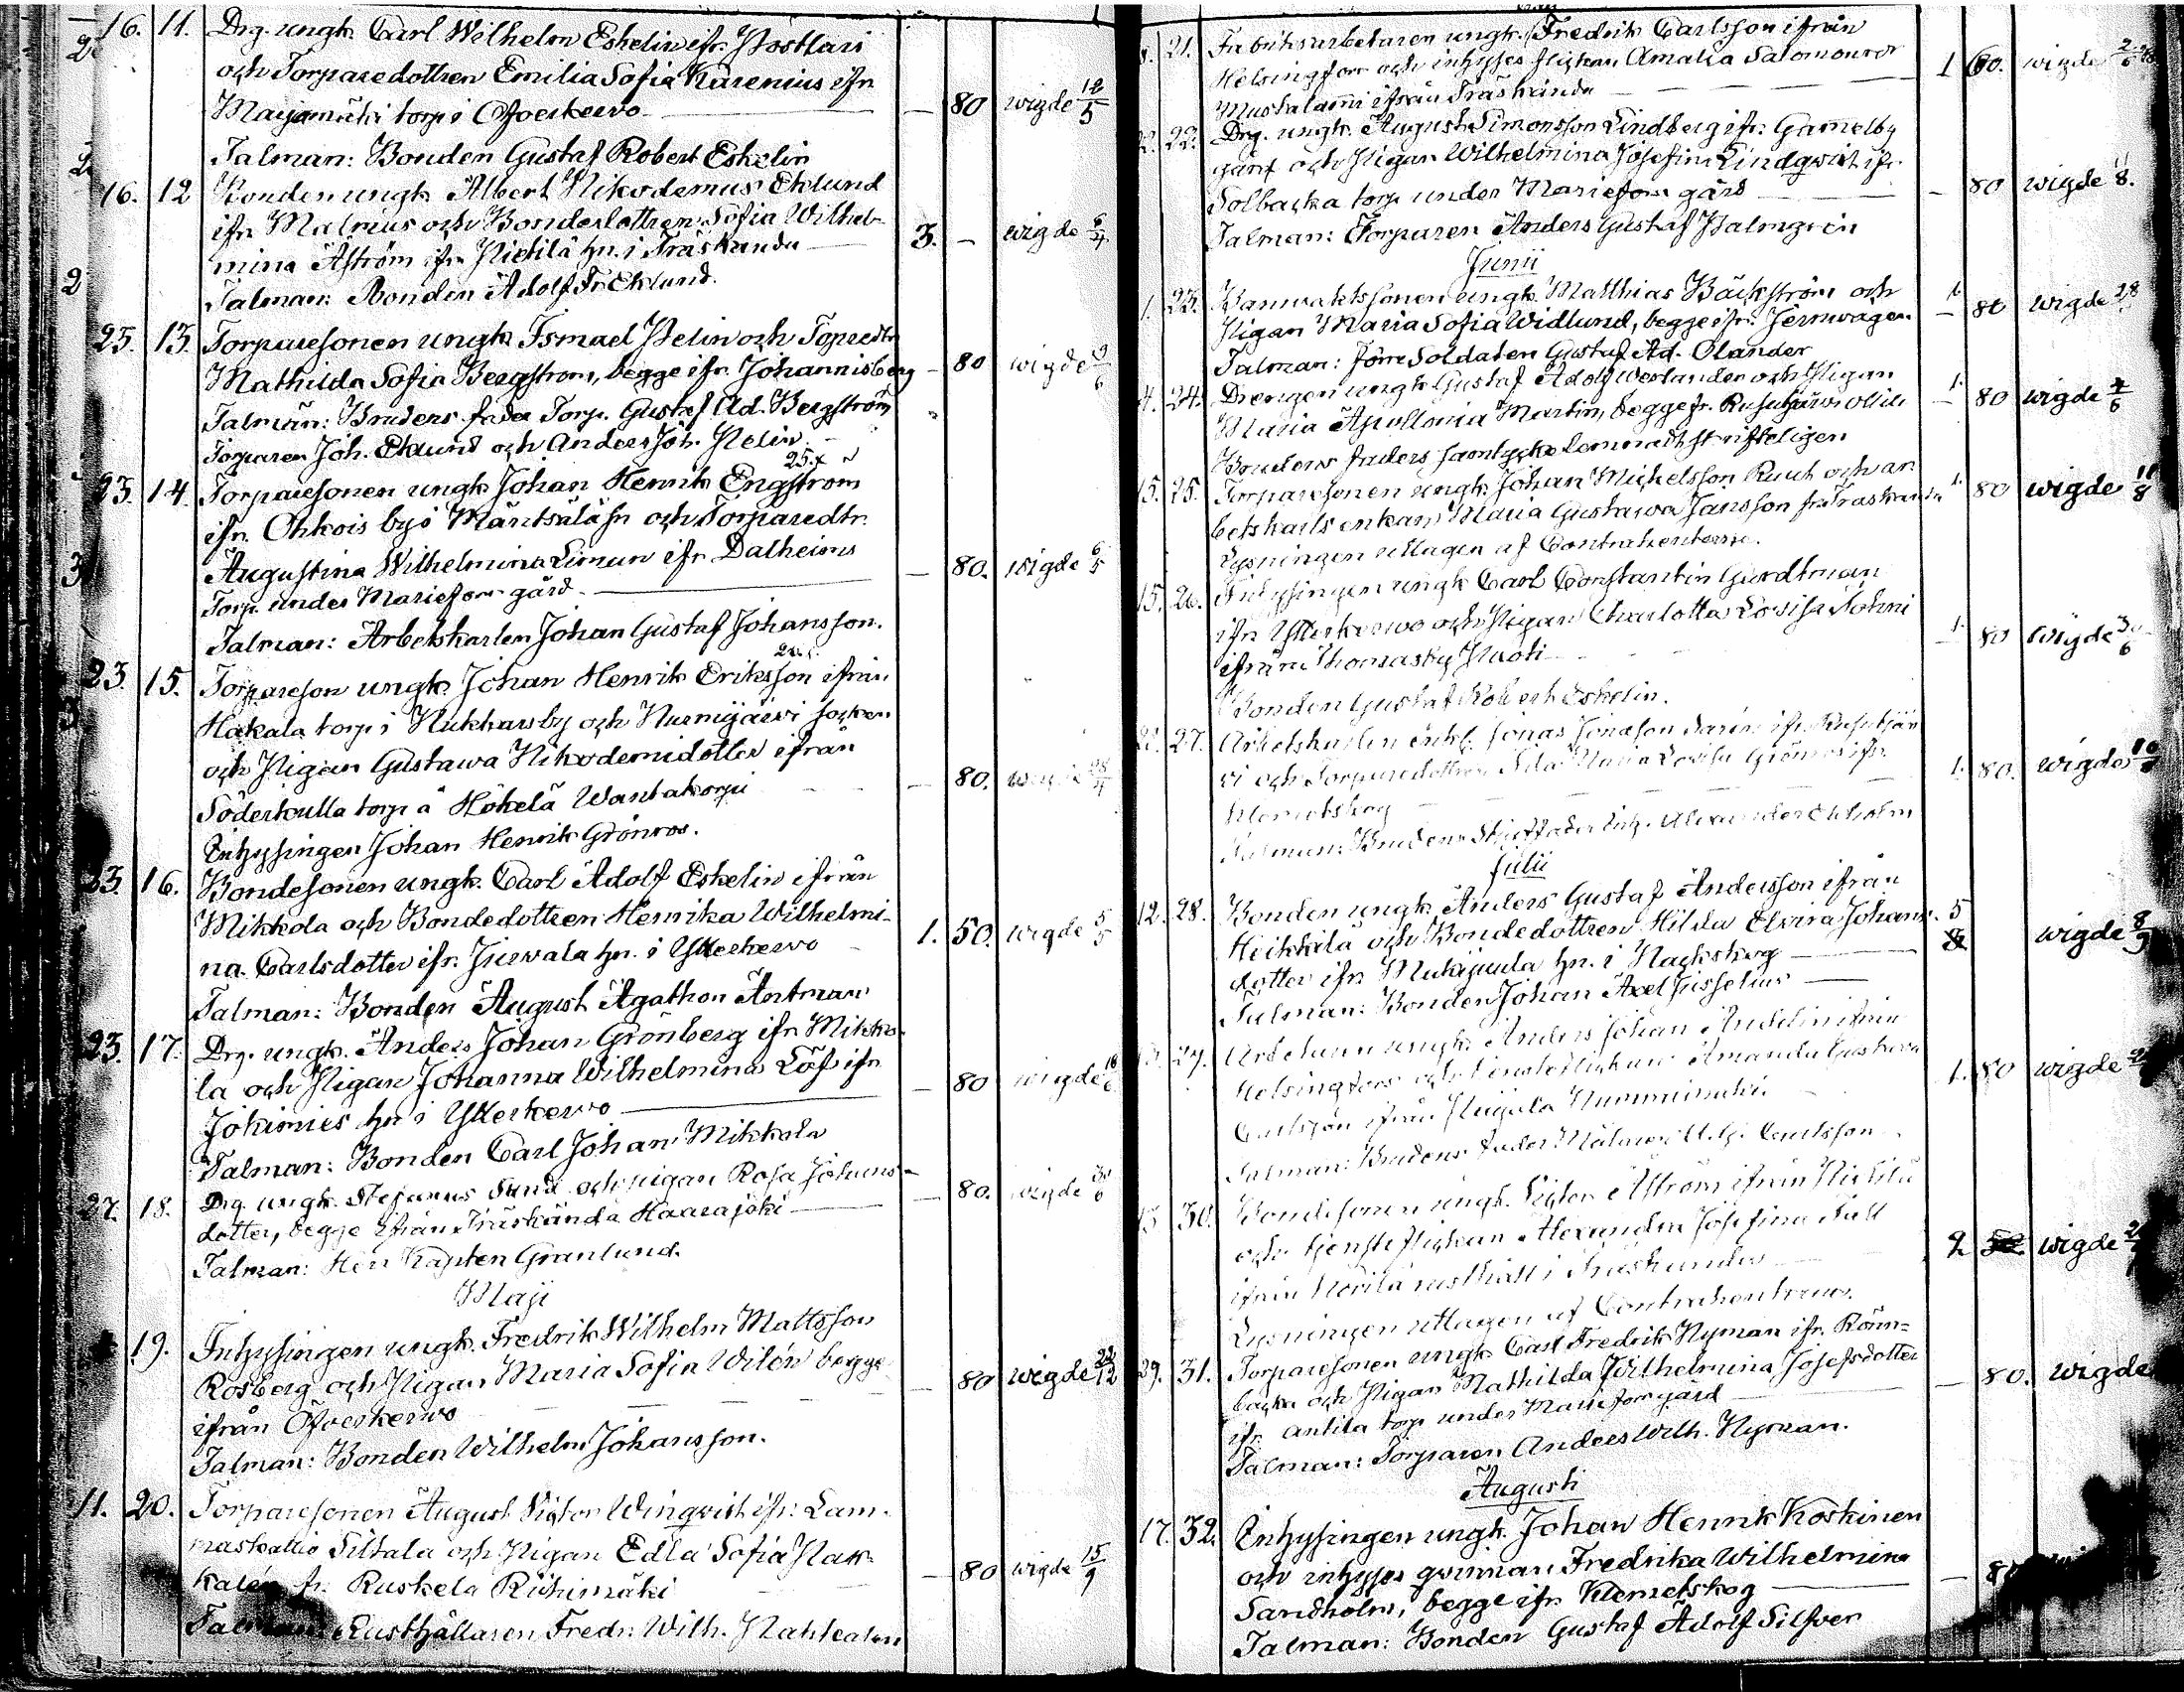 16. 11. Drg. ungk. Carl Wilhelm Eskelin ifr. Postlari
och Torparedottren Emilia Sofia Karenius ifr.
Marjamäki torp i Öfverkervo — 80 wigde 12/5
Talman: Bonden Gustaf Robert Eskelin
16. 12 Bonden ungk. Albert Nikodemus Eklund
ifr. Malmius och Bondedottren Sofia Wilhel-
mina Åström ifr. Pietilä hn. i Träskända 3. — wigde 6/4
Talman: Bonden Adolf Fr. Eklund.
25. 13. Torparesonen ungk. Ismael Helin och Topredtr
Mathilda Sofia Bergstrom, begge ifr. Johannisberg — 80 wigde 9/6
Talman: Brudens fader Torp. Gustaf Ad. Bergström
Torparen Joh. Eklund och Anders Joh. Helin.
23. 14. Torparesonen ungk. Johan Henrik Engstrom
ifr. Ohkois by i Mäntsälä sn och Torparedtr.
Augustina Wilhelmina Limun ifr. Dalheims — 80. wigde 6/5
Torp. under Mariefors gård
Talman: Arbetskarlen Johan Gustaf Johansson.
23. 15. Torpareson ungk. Johan Henrik Eriksson ifrån
Hakala torp i Nukkars by och Nurmijärvi socken
och Pigan Gustawa Nikodemidotter ifrån
Söderkulla torp å Hökelä Wantakorpi — 80. wigde 28/4
Inhysingen Johan Henrik Grönroos.
23. 16. Bondesonen ungk. Carl Adolf Eskelin ifrån
Mikkola och Bondedottren Henrika Wilhelmi-
na Carlsdotter ifr. Juswala hn. i Ytterkerwo 1. 50. wigde 5/5
Talman: Bonden August Agathon Antman
23. 17. Drg. ungk. Anders Johan Grönberg ifr. Mikko-
la och Pigan Johanna Wilhelmina Löf ifr. — 80 wigde
Jokimies hn i Ytterkerwo
Talman: Bonden Carl Johan Mikkola
27. 18. Drg. ungk. Stefanus Sund och pigan Rosa Johans-
dotter, begge ifrån Träskända Haarajoki — 80. wigde 30/6
Talman: Herr Kapten Granlund.
Maji
19. Inhysingen ungk. Fredrik Wilhelm Mattsson
Rosberg och Pigan Maria Sofia Wilén begge
ifrån Öfverkerwo — 80 wigde 22/12
Talman: Bonden Wilhelm Johansson.
11. 20. Torparesonen August Victor Winqvist ifr. Lam-
maskallio Siltala och Pigan Edla Sofia Hak-
kalén fr. Ruskela Riihimäki — 80 wigde 15/9
Talman: Rusthållaren Fredr. Wilh.
8. 21. Fabriksarbetaren ungk. Fredrik Carlsson ifrån
Helsingfors och inhyses flickan Amalia Salomonsr 1 60. wigde
Mustalami ifrån Träskända
22. 22. Drg. ungk. August Simonsson Lindberg ifr. Gamelby
gård och Pigan Wilhelmina Josefina Lindqwist ifr.
Solbacka torp under Mariefors gård — 80 wigde 11/8.
Talman: Torparen Anders Gustaf Palmgren
Junii
1. 23. Banwaktssonen ungk. Matthias Bäckström och
Pigan Maria Sofia Widlund, begge ifr. Jernwagen — 80 wigde
Talman: Förre Soldaten Gustaf Ad. Olander
4. 24. Drengen ungk. Gustaf Adolf Westander och Pigan
Maria Apollonia Martin, begge fr. Rusutjärvi — 80 wigde
Brudens faders samtycke lemnadt skrifteligen
15. 25. Torparesonen ungk. Johan Michelsson Ruut och ar-
betskarls enkan Maria Gustawa Jansson fr. Träskända 80 wigde 11/8
Lysningen uttagen af Contrahenterne.
15. 26. Inhysingen ungk. Carl Constantin Gerdtman
ifr. Ytterkerwo och Pigan Charlotta Lovisa
ifrån Thomasby 80 wigde
Bonden Gustaf Robert Eskelin.
22. 27. Arbetskarlen enkl. Jonas Jonasson ifr. Rusutjär-
vi och Torparedottren Ida Maria Lovisa Grönroos ifr. 1. 80. wigde
Klemetskog
Talman: Brudens Styffader Inh. Alexander Ekholm
Julii
12. 28. Bonden ungk. Anders Gustaf Andersson ifrån
Heikkilä och Bondedottren Hilda Elvira Johans- 5
dotter ifr. Mukijuula hn. i Nackskog wigde 8/9
Talman: Bonden Johan Axel Jusselius
29. Arbetaren ungk. Anders Johan Andelin ifrån
Helsingfors och tjensteflickan Amanda Gustava
Carlsson ifrån Nummimäki. 1. 80 wigde
Talman: Brudens fader Målare Carlsson
30. Bondesonen ungk. Victor Åström ifrån Pietilä
och tjensteflickan Alexandra Josefina Fält
ifrån rusthåll i Träskända 2 wigde
Lysningen uttagen af Contrahenterne.
29. 31. Torparesonen ungk. Carl Fredrik Nyman ifr. Rönn-
backa och Pigan Mathilda Wilhelmina Josefsdotter
ifr. Antila torp under Mariefors gård — 80. wigde
Talman: Torparen Anders Wilh. Nyman.
Augusti
17. 32. Inhysingen ungk. Johan Henrik Koskinen
och inhyses qwinnan Fredrika Wilhelmina
Sandholm, begge ifr. Klemetskog — 80
Talman: Bonden Gustaf Adolf Silfver